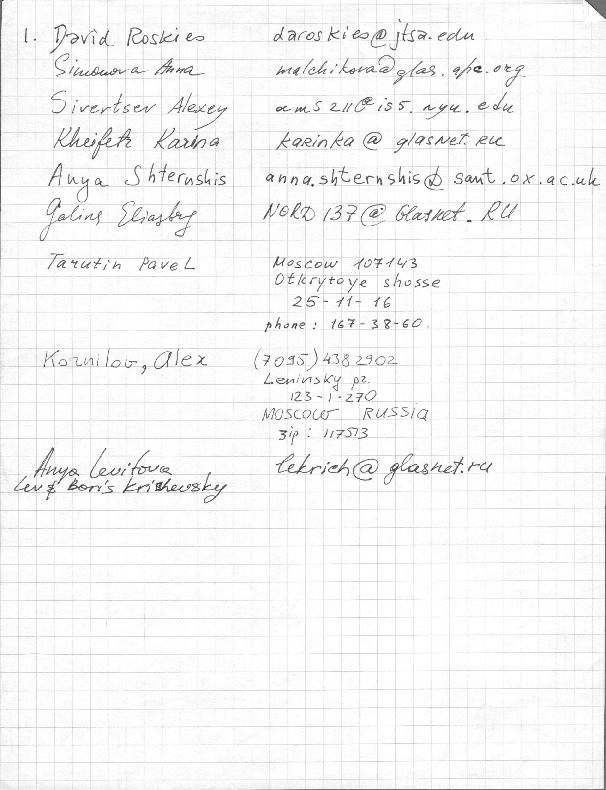 1. David Roskies daroskies@jtsa.edu
Simonova Anna malchikova@glas.apc.org
Sivertsev Alexey ams211@is5.nyu.edu
Kheifetz Karina karinka@glasnet.RU
Anya Shternshis anna.shternshis@sant.ox.ac.uk
Galina Eliasberg NORD137@Glasnet.RU
Tarutin Pavel Moscow 107143
Otkrytoye shosse
25-11-16
phone: 167-38-60.
Kornilov, Alex (7095)4382902
Leninsky pr.
123-1-270
MOSCOW RUSSIA
zip: 117513
Anya Levitova lekrich@glasnet.ru
Lev & Boris Krichevsky